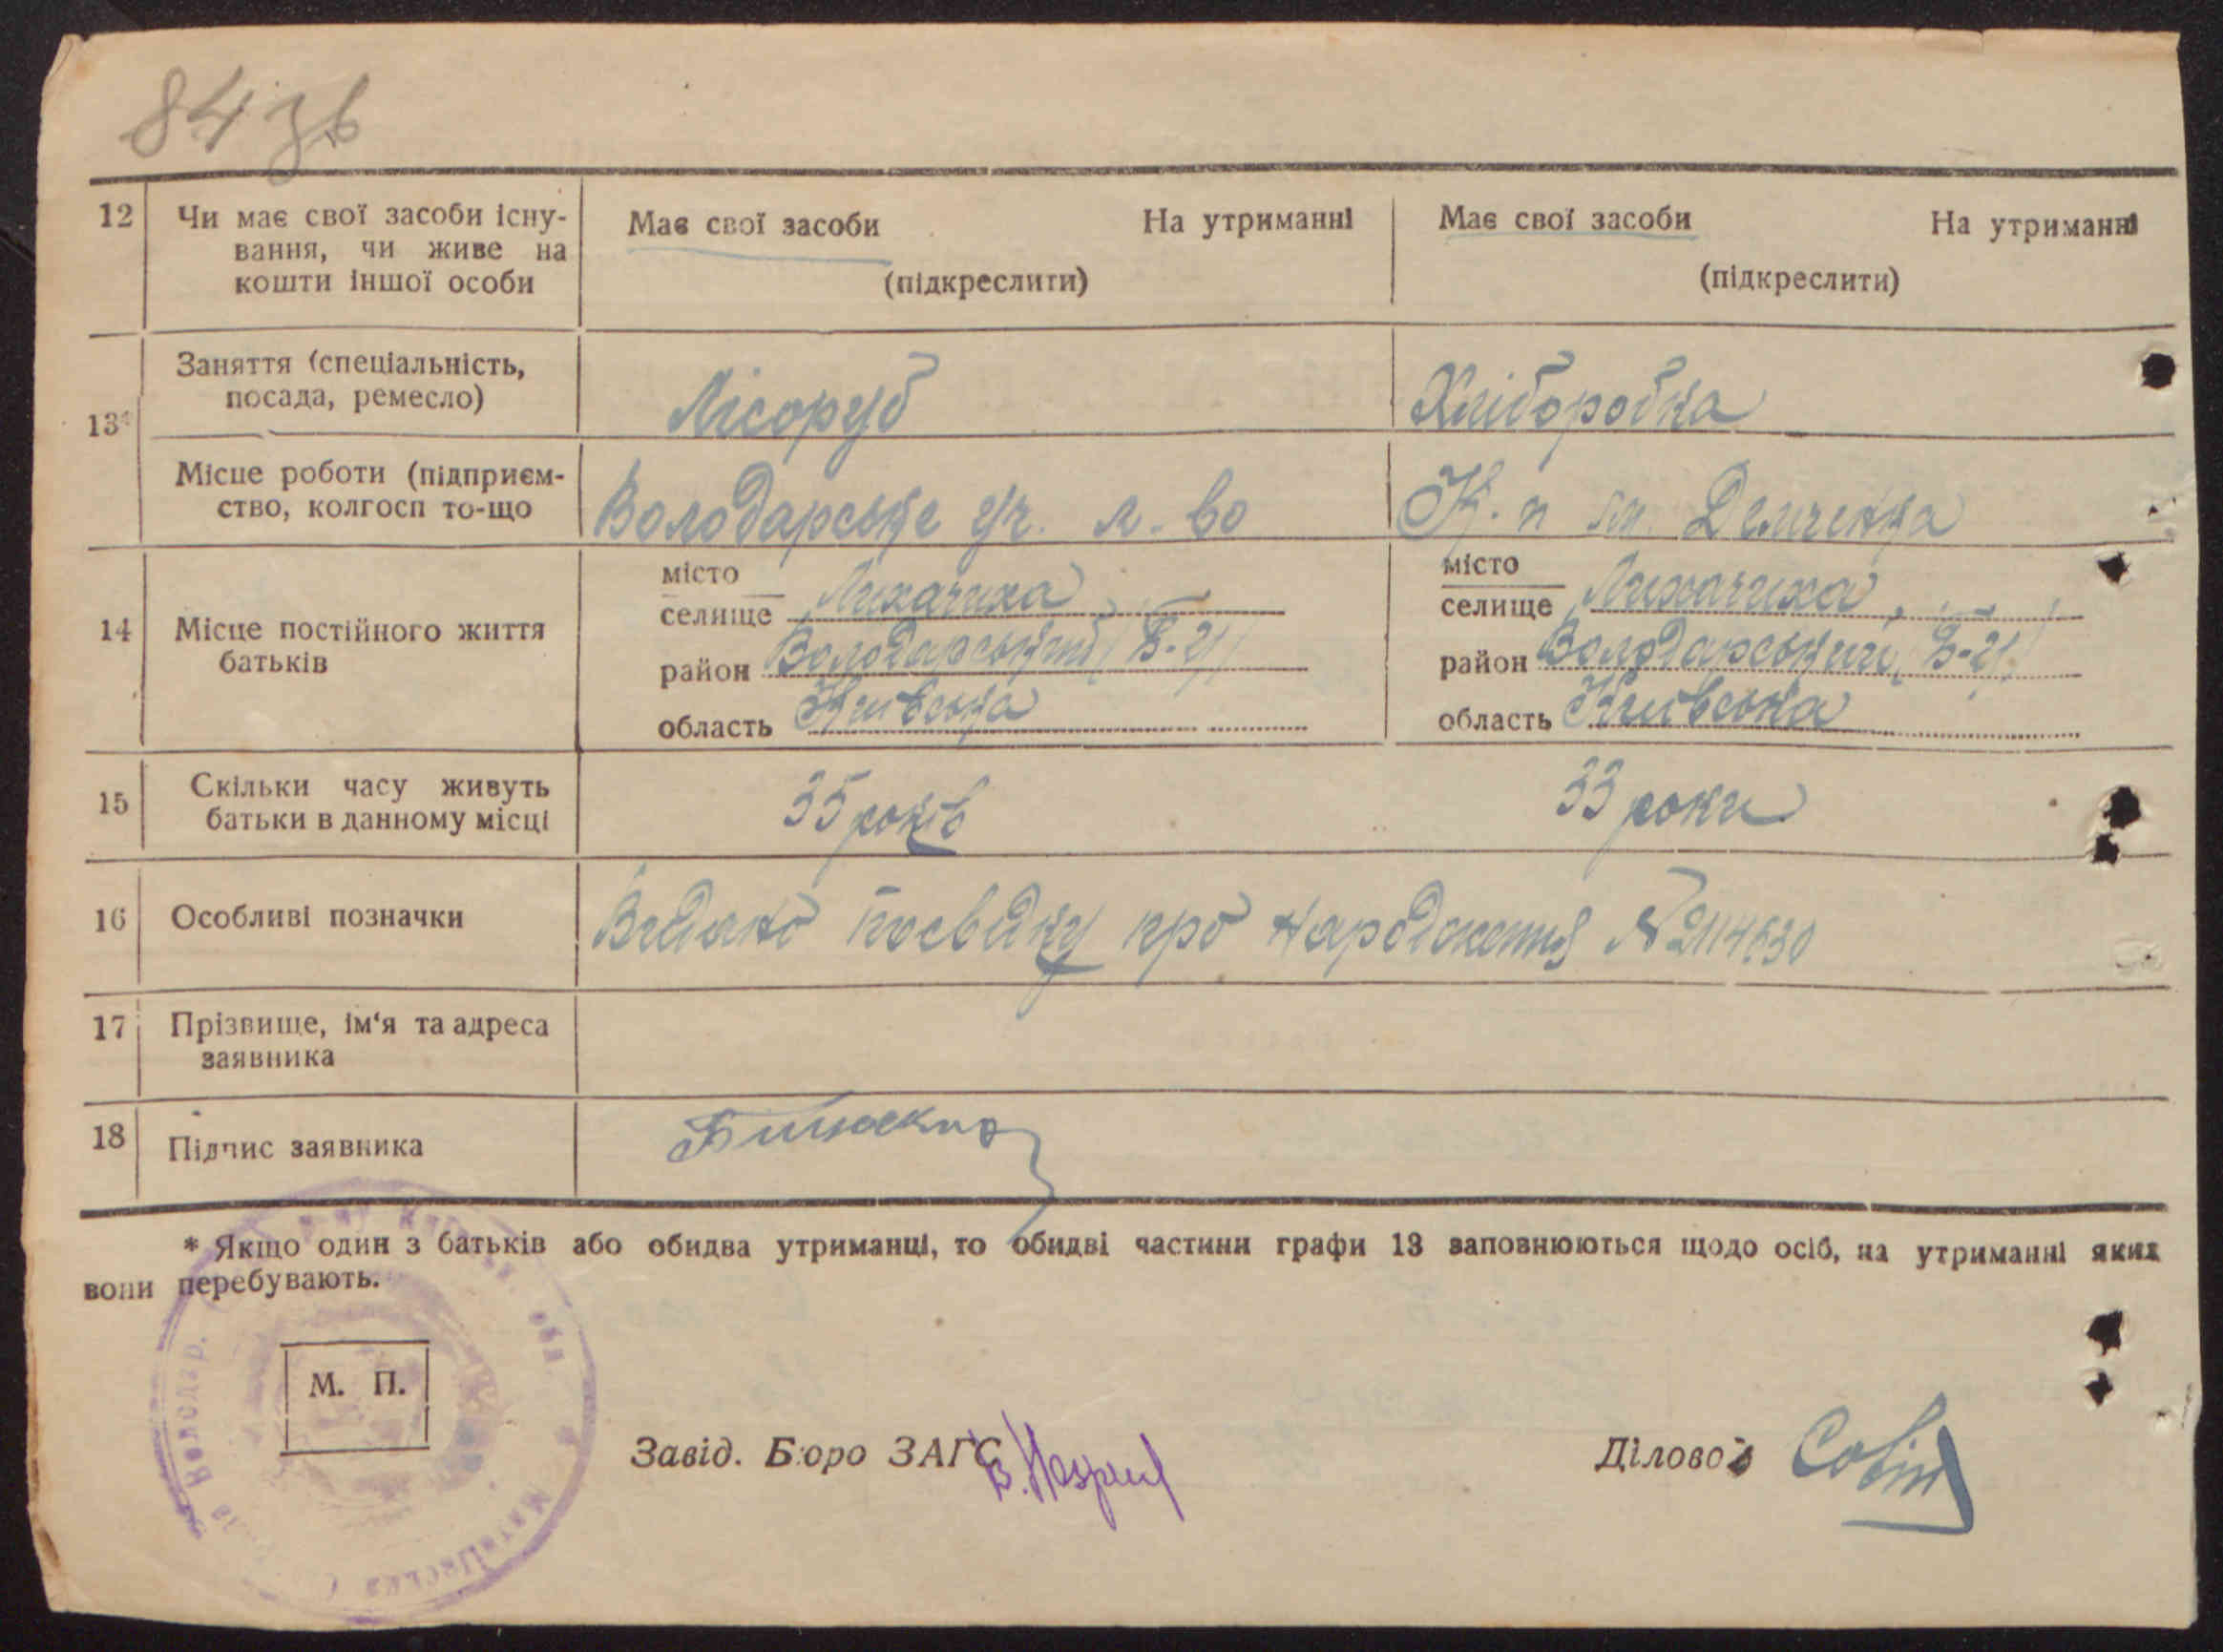 84 зв
12 Чи має свої засоби існу- Має свої засоби На утриманні Має свої засоби На утриманні
вання, чи живе на
кошти іншої особи (підкреслити) (підкреслити)
13* Заняття (спеціальність,
посада, ремесло) Лісоруб Хліборобка
Місце роботи (підприєм-
ство, колгосп то-що Володарське уч. л-во К. п ім. Демченка
14 Місце постійного життя
батьків
місто місто
селище Лихачиха селище Лихачиха
район Володарський, Б-Ц район Володарський, Б-Ц
область Київська область Київська
15 Скільки часу живуть
батьки в данному місці 35 років 33 роки
16 Особливі позначки Видано посвідку про народження № 2114630
17 Прізвище, ім'я та адреса
заявника
18 Підпис заявника
* Якщо один з батьків або обидва утриманці, то обидві частини графи 13 заповнюються щодо осіб, на утриманні яких
вони перебувають.
М. П.
Завід. Бюро ЗАГС
Діловод